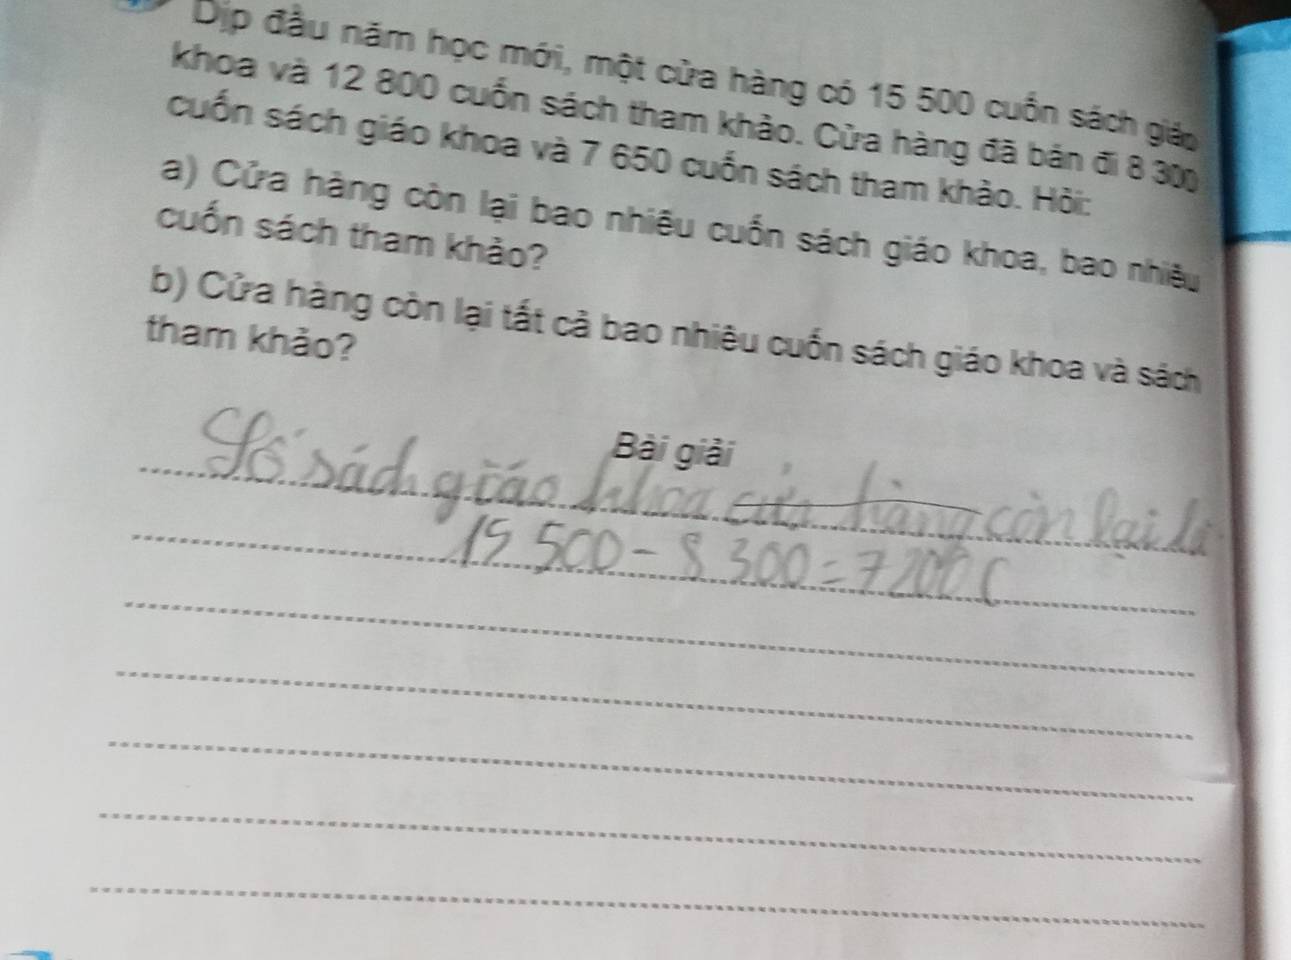 Dịp đầu năm học mới, một cửa hàng có 15 500 cuốn sách giáo
khoa và 12 800 cuốn sách tham khảo. Cửa hàng đã bán đi 8 300
cuốn sách giáo khoa và 7 650 cuốn sách tham khảo. Hỏi:
a) Cửa hàng còn lại bao nhiêu cuốn sách giáo khoa, bao nhiêu
cuốn sách tham khảo?
b) Cửa hàng còn lại tất cả bao nhiêu cuốn sách giáo khoa và sách
tham khảo?
Bài giải
Số sách giáo khoa cửa hàng còn lại là
15 500 - 8 300 = 7200 (